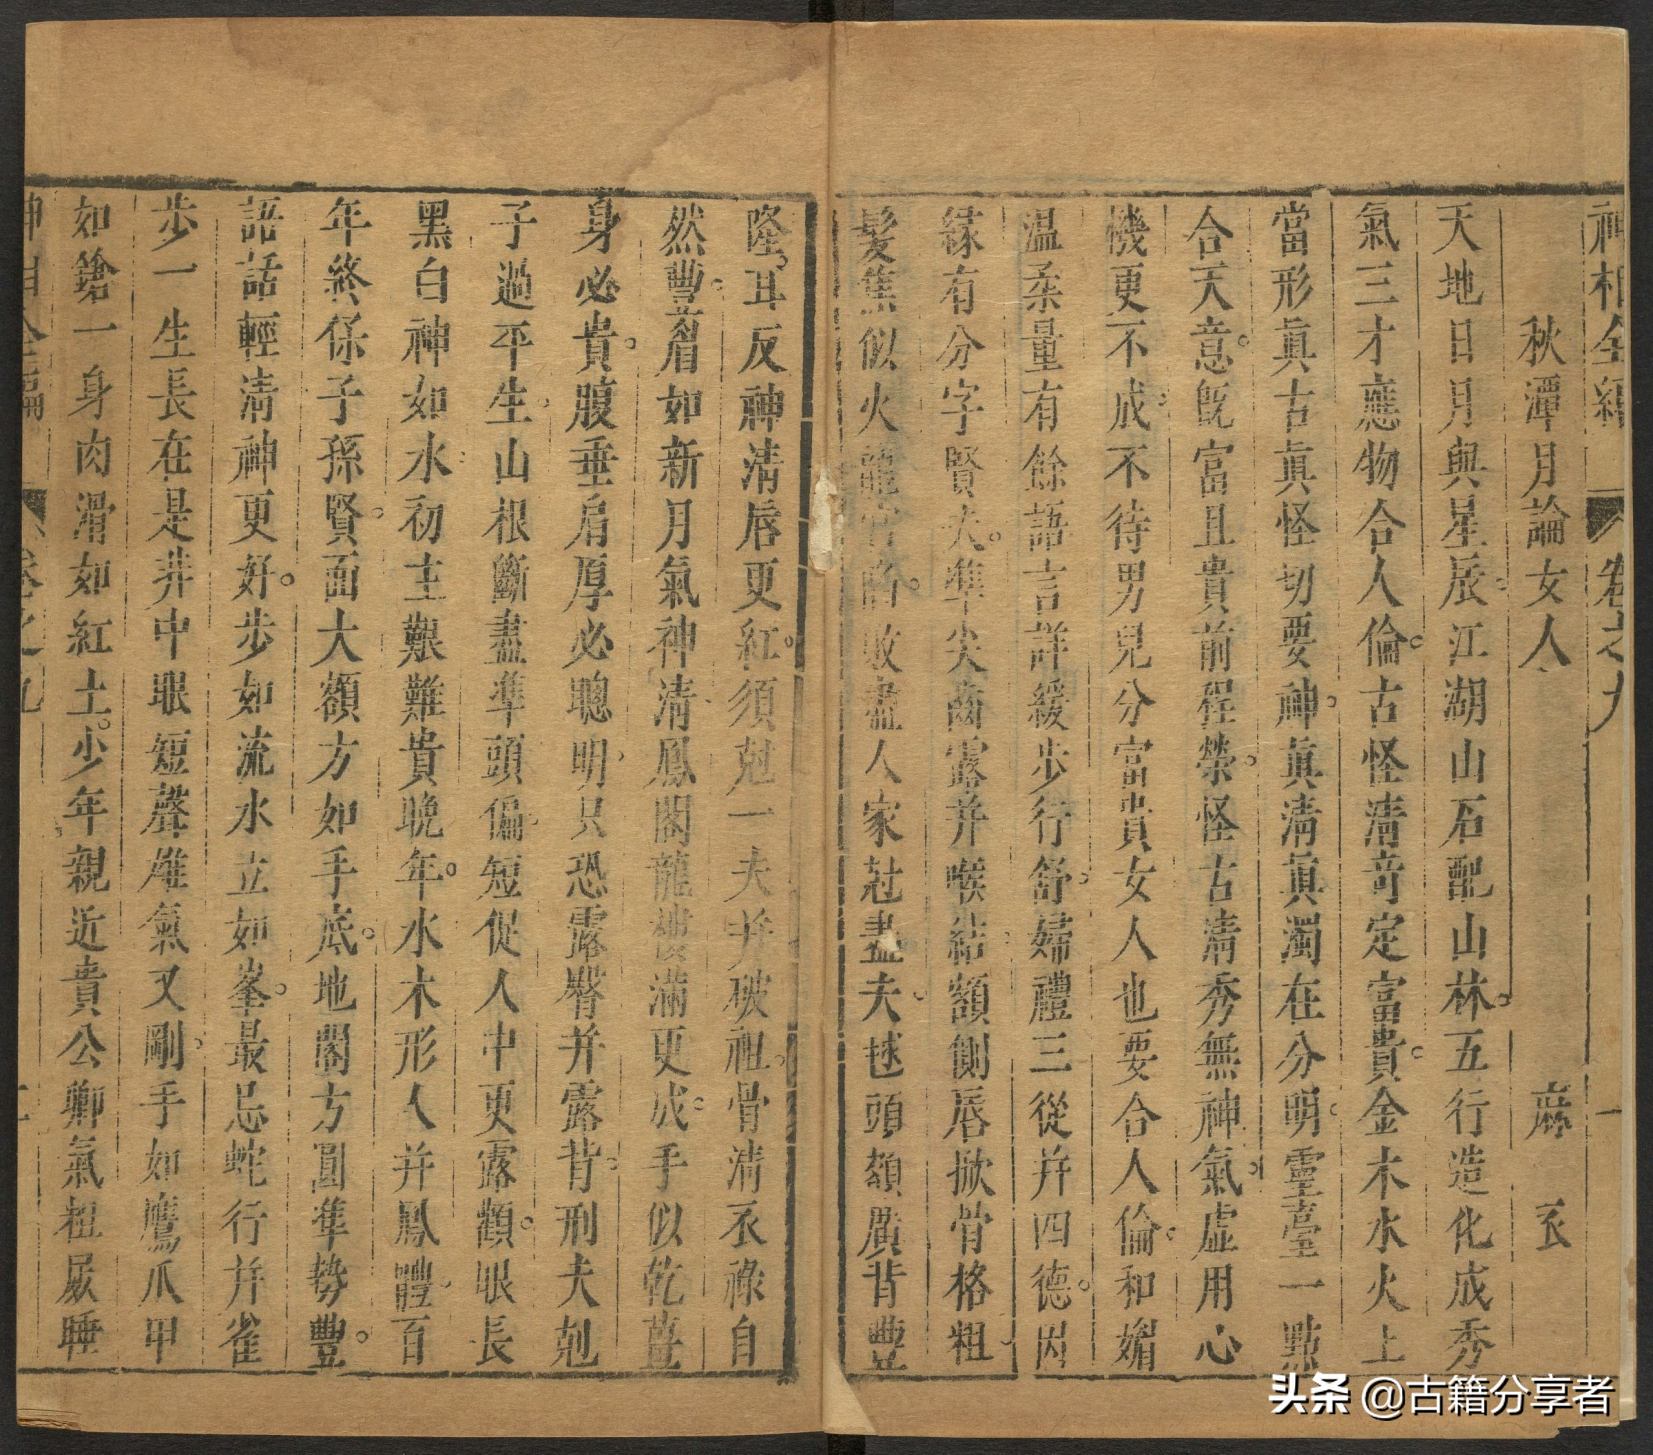 神相全編 卷之九 一
秋潭月論女人 麻衣
天地日月與星辰江湖山石配山林五行造化成秀
氣三才應物合人倫古怪清奇定富貴金木水火土
當形眞古眞怪切要神眞清眞濁在分明靈臺一點
合天意既富且貴前程榮怪古清秀無神氣虛用心
機更不成不待男兒分富貴女人也要合人倫和媚
温柔量有餘語言詳緩步行舒婦禮三從并四德因
緣有分字賢夫準尖齒露并喉結額側唇掀骨格粗
髮焦似火龍宮陷敗盡人家尅盡夫毬頭額廣背豐
隆耳反神清唇更紅須尅一夫并破祖骨清衣祿自
然豐眉如新月氣神清鳳閣龍樓滿更成手似乾薑
身必貴腹垂肩厚必聰明只恐露臀并露背刑夫剋
子過平生山根斷盡準頭偏短促人中更露顴眼長
黑白神如水初主艱難貴晚年水木形人并鳳體百
年終保子孫賢面大額方如手底地閣方圓準勢豐
語話輕清神更好步如流水立如峯最忌蛇行并雀
步一生長在是非中眼短聲雄氣又剛手如鷹爪甲
如鎗一身肉滑如紅土少年親近貴公卿氣粗屎睡
神相全編 卷之九
頭条 @古籍分享者